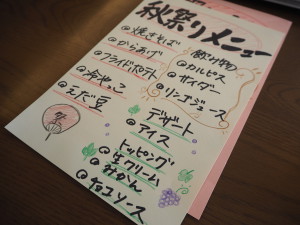 秋祭りメニュー
@焼きそば
@からあげ
@フライドポテト
@冷やっこ
@えだ豆
飲み物
@カルピス
@サイダー
@リンゴジュース
デザート
@アイス
トッピング
@生クリーム
@みかん
@チョコソース